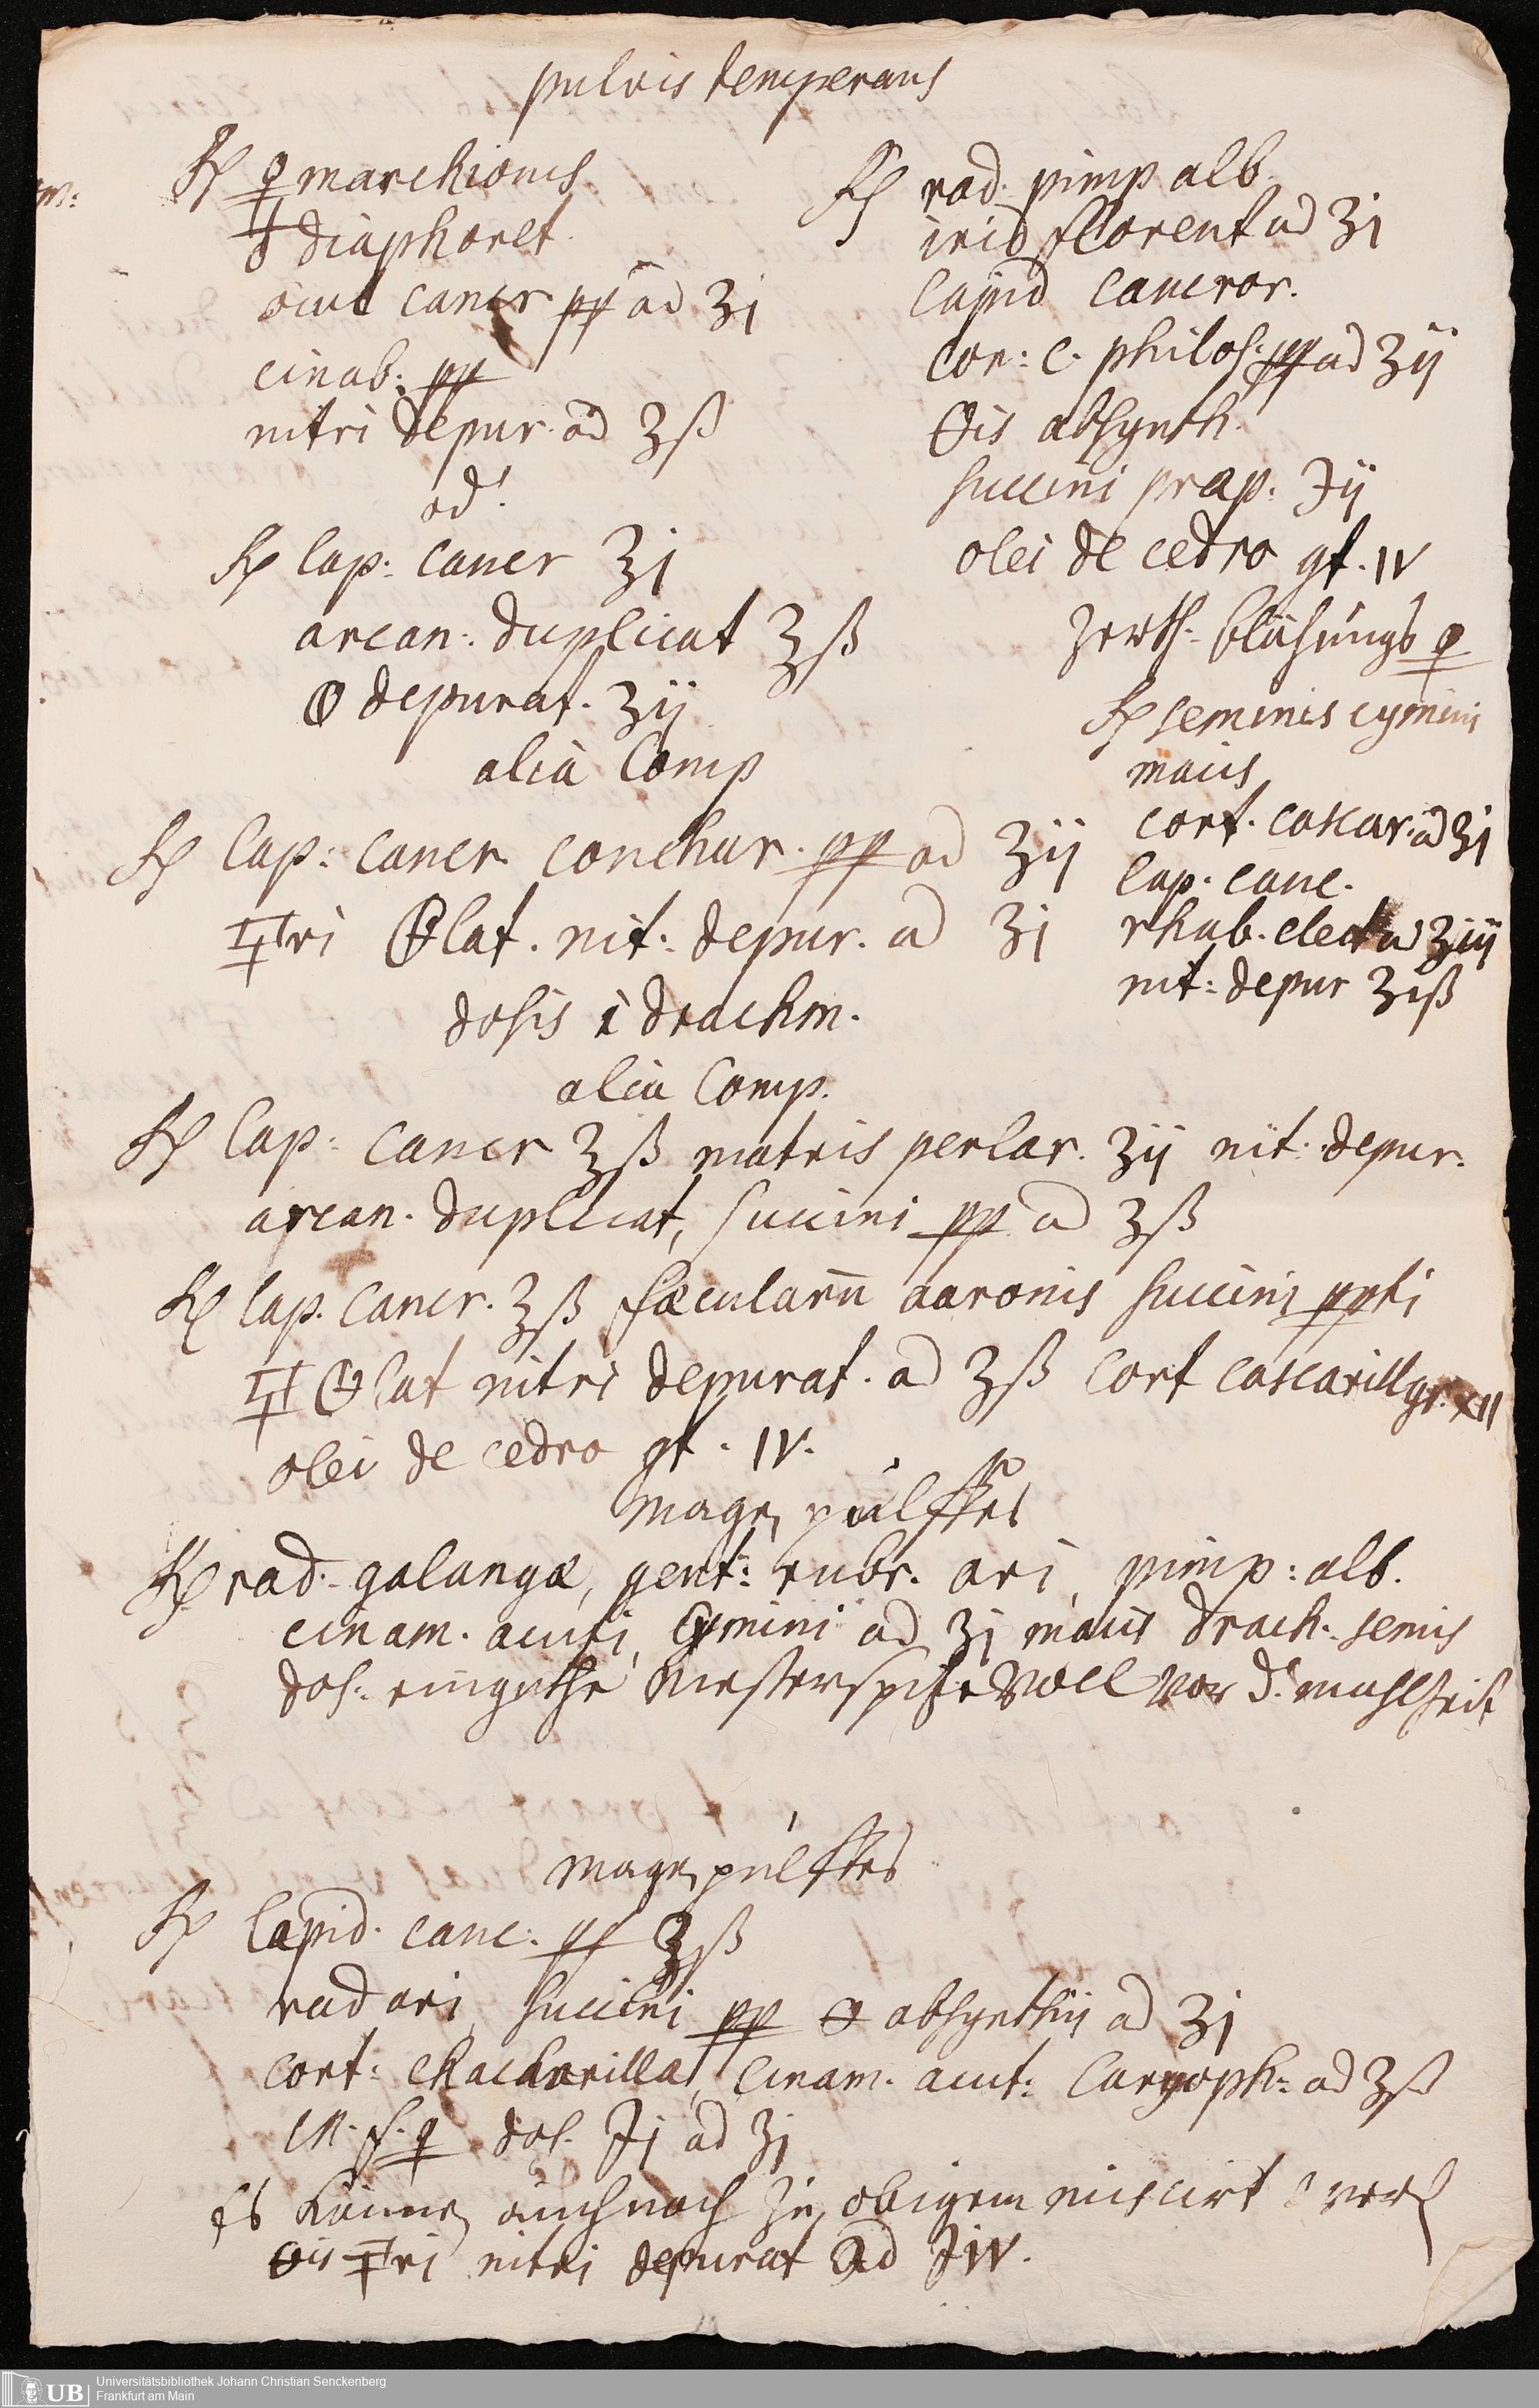 pulvis temperans
℞ marchionis
♁ diaphoret.
ocul cancr pp ad ʒj
cinab. pp
nitri depur. ad ʒß
od.
℞ lap: cancr ʒj
arcan: duplicat ʒß
depurat. ʒij
alia Comp
℞ lap: cancr conchar. pp ad ʒij
ri lat. nit: depur. ad ʒj
dosis 1 drachm.
℞ rad. pimp alb.
irid florent ad ʒj
lapid cancror.
cor: c. philos: pp ad ʒij
is absynth.
succini præp: ℈ij
olei de cedro gt. IV
zerth. blähungs
℞ seminis cymini
macis
cort. cascar. ad ʒj
lap. canc.
rhab. elect ad ʒiij
nit: depur ʒiß
alia Comp.
℞ lap: cancr ʒß matris perlar. ʒij nit: depur.
arcan. duplicat, succini pp ad ʒß
℞ lap. cancr. ʒß fæcularū aaronis succini ppti
lat nitri depurat. ad ʒß cort cascarill gr. XII
olei de cedro gt. IV.
magen pulffer
℞ rad. galangæ, gent: rubr. ari, pimp: alb.
cinam. acuti, Cymini ad ʒj macis drach. semis
dos: einguthe Messerspitze Voll vor d. mahlzeit
magen pulffer
℞ lapid. canc: pp ʒß
rad ari, succini pp absynthij ad ʒj
cort: chacharillæ, Cinam. acut: Caryoph: ad ʒß
M. f. dos. ℈j ad ʒj
Es können auch noch zu obigem miscirt werd
is ri nitri depurat ad ℈IV.
UB
Universitätsbibliothek Johann Christian Senckenberg
Frankfurt am Main